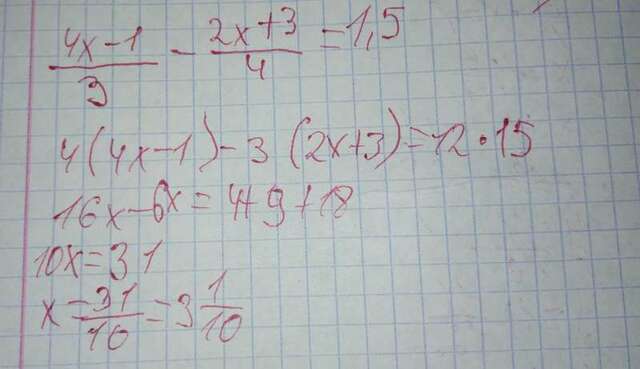 (4x-1)/3 - (2x+3)/4 = 1,5
4(4x-1)-3(2x+3)=12•15
16x-6x=4+9+18
10x=31
x=31/10=3 1/10